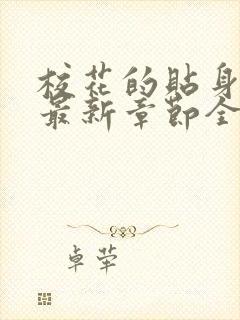 校花的贴身
最新章节全
卓荦